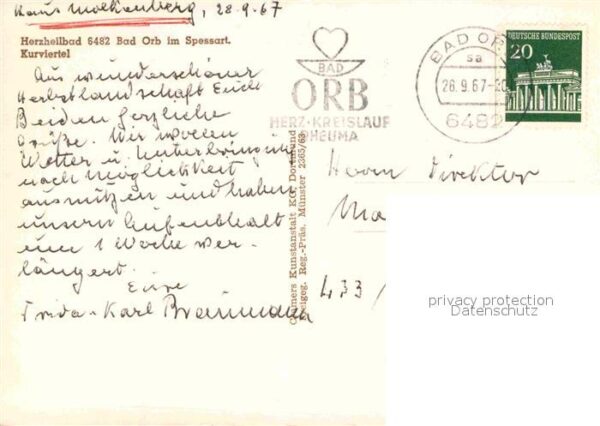 Haus Molkenberg, 28.9.67
Herzheilbad 6482 Bad Orb im Spessart.
Kurviertel
Aus wunderschöner
Herbstlandschaft Euch
Beiden herzliche
Grüße. Wir wollen
Wetter u. Unterbringung
nach Möglichkeit
ausnutzen und haben
unsern Aufenthalt
um 1 Woche ver-
längert.
Eure
Frida - Karl Braumann
Cramers Kunstanstalt KG, Dortmund
Freigeg. Reg.-Präs. Münster 2365/63
BAD
ORB
HERZ·KREISLAUF
RHEUMA
BAD ORB
sa
28.9.67-20
6482
DEUTSCHE BUNDESPOST
20
Herrn Direktor
Ma
433
privacy protection
Datenschutz